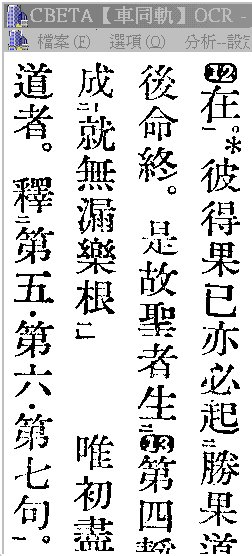 CBETA【車同軌】OCR -
檔案(F) 選項(O) 分析--設
⓬在一。*彼得果已亦必起二勝果道
後命終。 是故聖者生二⓭第四
成二就無漏樂根一 唯初盡
道者。 釋二第五・第六・第七句一。